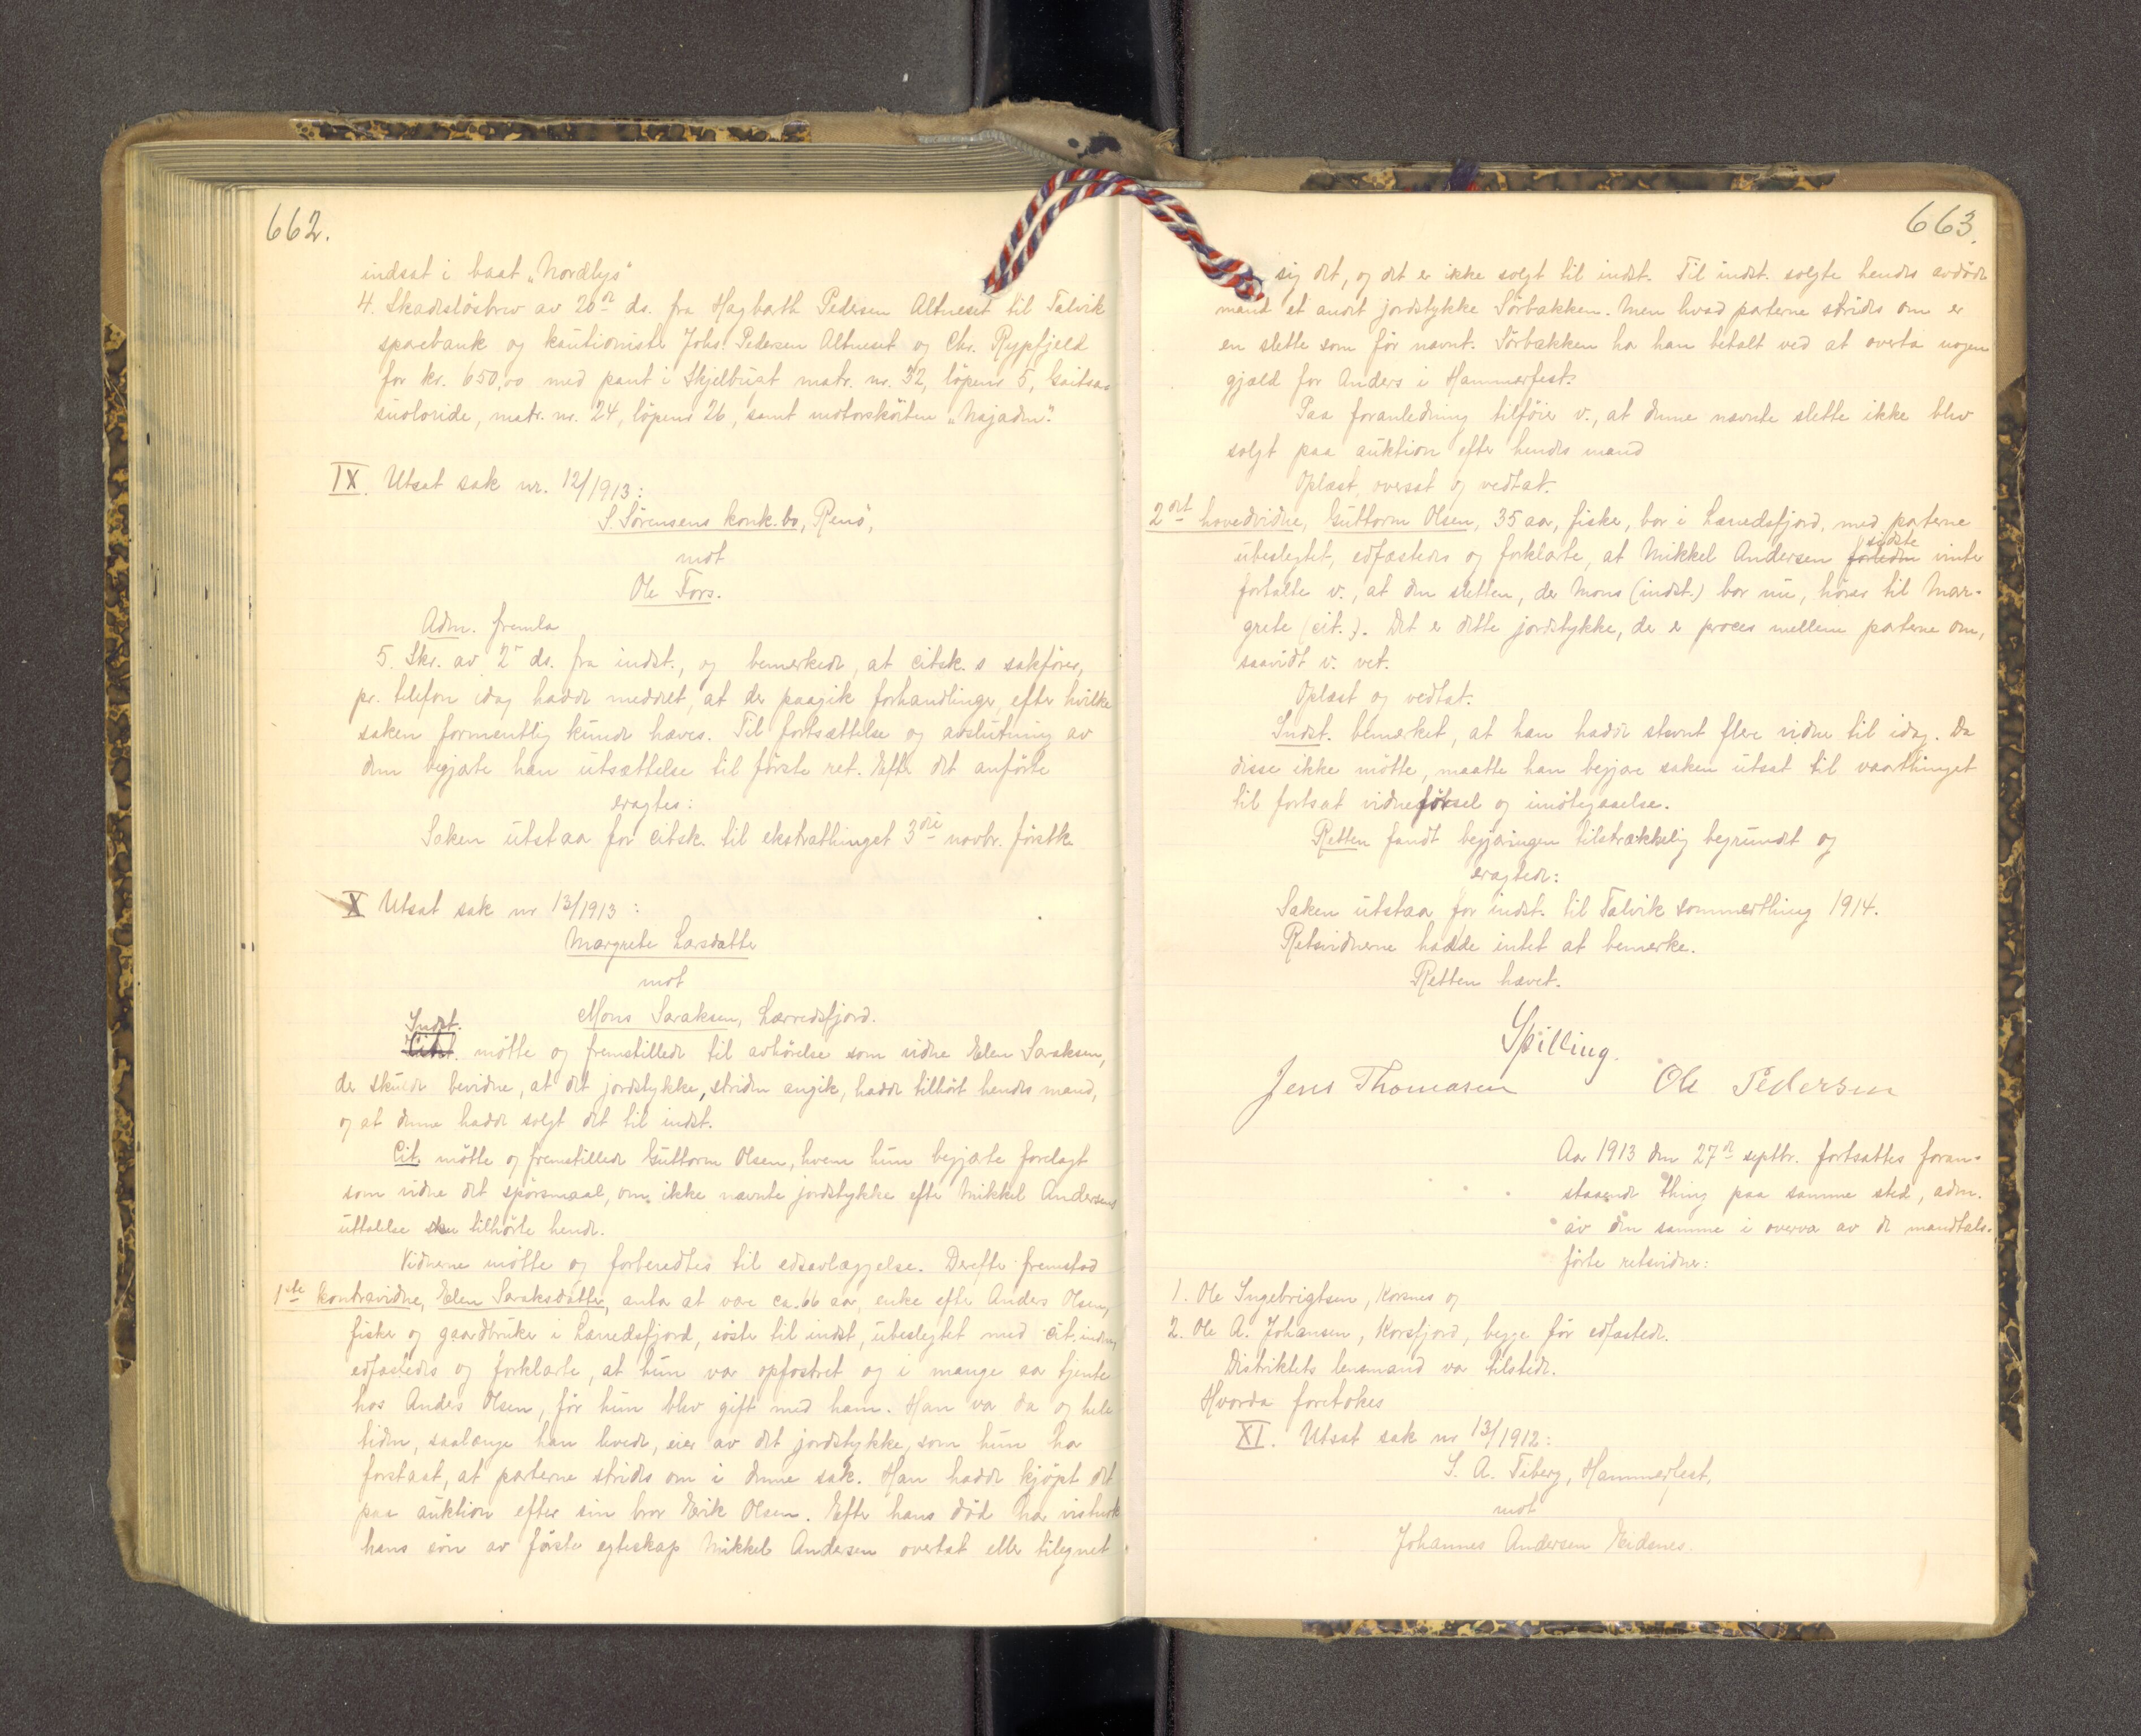 662.
indsat i baat „Nordlys"
4. Skadesløsbrev av 20de ds. fra Hagbarth Pedersen Altneset til Talvik
sparebank og kautionister Johs. Pedersen Altneset og Chr. Rypfjeld
for kr. 650,00 med pant i Skjelbugt matr. nr. 32, løpenr 5,
matr. nr. 24, løpenr 26, samt motorskøiten „Najaden".
IX. Utsat sak nr. 12/1913:
S. Sørensens konk. bo, Renø,
mot
Ole Fors.
Adm. fremla
5. Skr. av 2den ds. fra indst., og bemerkede, at citsk.s sakfører,
pr. telefon idag hadde meddelt, at der paagik forhandlinger, efter hvilke
saken formentlig kunde hæves. Til fortsættelse og avslutning av
dem begjærte han utsættelse til første ret. Efter det anførte
eragtes:
Saken utstaar for citsk. til ekstrathinget 3die novbr. førstk.
X Utsat sak nr 13/1913:
Margrete Larsdatter
mot
Mons Saraksen, Lærredsfjord.
Indst.
Citst. møtte og fremstillede til avhørelse som vidne Elen Saraksen,
der skulde bevidne, at det jordstykke, striden angik, hadde tilhørt hendes mand,
og at denne hadde solgt det til indst.
Cit. møtte og fremstillede Guttorm Olsen, hvem hun begjærte forelagt
som vidne det spørsmaal, om ikke nævnte jordstykke efter Mikkel Andersens
uttalelse tilhørte hende.
Vidnerne møtte og forberedtes til edsavlæggelse. Derefter fremstod
1ste kontravidne, Elen Saraksdatter, antar at være ca. 66 aar, enke efter Anders Olsen,
fisker og gaardbruker i Lærredsfjord, søster til indst, ubeslegtet med cit.inden,
edfæstedes og forklarte, at hun var opfostret og i mange aar tjente
hos Anders Olsen, før hun blev gift med ham. Han var da og hele
tiden, saalænge han levede, eier av det jordstykke, som hun har
forstaat, at parterne strides om i denne sak. Han hadde kjøpt det
paa auktion efter sin bror Erik Olsen. Efter hans død har vistnok
hans søn av første egteskap Mikkel Andersen overtat eller tilegnet
663.
sig det, og det er ikke solgt til indst. Til indst. solgte hendes avdøde
mand et andet jordstykke Sørbakken. Men hvad parterne strides om er
en slette som før nævnt. Sørbakken har han betalt ved at overta nogen
gjæld for Anders i Hammerfest.
Paa foranledning tilføier v., at denne nævnte slette ikke blev
solgt paa auktion efter hendes mand
Oplæst, oversat og vedtat.
2det hovedvidne, Guttorm Olsen, 35 aar, fisker, bor i Lærredsfjord, med parterne
ubeslegtet, edfæstedes og forklarte, at Mikkel Andersen forleden sidste vinter
fortalte v., at den sletten, der Mons (indst.) bor nu, hører til Mar-
grete (cit.). Det er dette jordstykke, der er proces mellem parterne om,
saavidt v. vet.
Oplæst og vedtat.
Indst. bemerket, at han hadde stevnt flere vidner til idag. Da
disse ikke møtte, maatte han begjære saken utsat til vaarthinget
til fortsat vidneførsel og imøtegaaelse.
Retten fandt begjæringen tilstrækkelig begrundet og
eragtede:
Saken utstaar for indst. til Talvik sommerthing 1914.
Retsvidnerne hadde intet at bemerke.
Retten hævet.
Spilling.
Jens Thomasen Ole Pedersen
Aar 1913 den 27de septbr. fortsattes foran-
staaende thing paa samme sted, adm.
av den samme i overvær av de mandtals-
førte retsvidner:
1. Ole Ingebrigtsen, Korsnes og
2. Ole A. Johansen, Korsfjord, begge før edfæstede.
Distriktets lensmand var tilstede.
Hvorda foretokes
XI. Utsat sak nr 13/1912:
S. A. Tiberg, Hammerfest,
mot
Johannes Andersen Eidsnes.